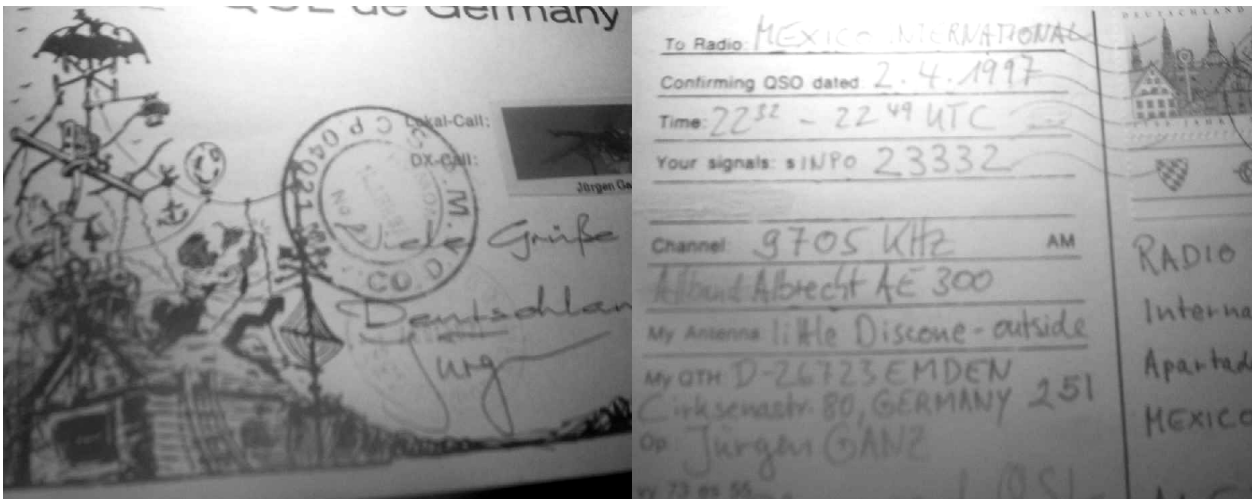 QSL de Germany
Lokal-Call:
DX-Call:
Jürgen Ga
Viele Grüße
Deutschlan
Jürg
C P 04021
M.
CO. D.
DEUTSCHLAND
To Radio: MEXICO INTERNATIONAL
Confirming QSO dated 2.4.1997
Time: 22 32 - 22 49 UTC
Your signals: SINPO 23332
Channel: 9705 KHz AM
Allband Albrecht AE 300
My Antenna: little Discone - outside
My QTH: D-26723 EMDEN
Cirksenastr. 80, GERMANY 251
Op: Jürgen GANZ
vy 73 es 55
QSL
RADIO
Interna
Apartad
MEXICO